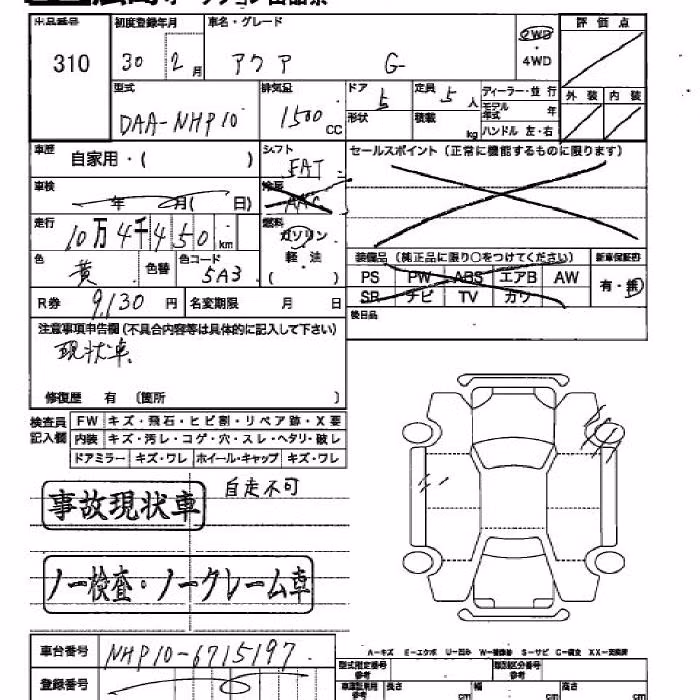 出品番号 初度登録年月 車名・グレード 評価点
310 30 2月 アクア G 2WD・4WD
型式 排気量 ドア 定員 ディーラー・並行 外装 内装
DAA-NHP10 1500cc 5 5人 モデル年式 年
形状 積載 kg ハンドル 左・右
車歴 自家用・( ) シフト FAT セールスポイント(正常に機能するものに限ります)
車検 年 月( 日) 冷房 AAC
走行 10万4千450km 燃料 ガソリン 軽・油 ( )
装備品(純正品に限り○をつけてください) 新車保証書
色 黄 色替 色コード 5A3 PS PW ABS エアB AW 有・無
SR ナビ TV カワ
R券 9,130円 名変期限 月 日 後日品
注意事項申告欄(不具合内容等は具体的に記入して下さい)
現状車
修復歴 有 〔箇所 〕
検査員記入欄 FW キズ・飛石・ヒビ割・リペア跡・X要
内装 キズ・汚レ・コゲ・穴・スレ・ヘタリ・破レ
ドアミラー キズ・ワレ ホイール・キャップ キズ・ワレ
事故現状車 自走不可
ノー検査・ノークレーム車
車台番号 NHP10-6715197
A-キズ E-エクボ U-凹み W-補修跡 S-サビ C-腐食 XX-交換済
型式指定番号 類別区分番号
登録番号 長さ cm 幅 cm 高さ cm